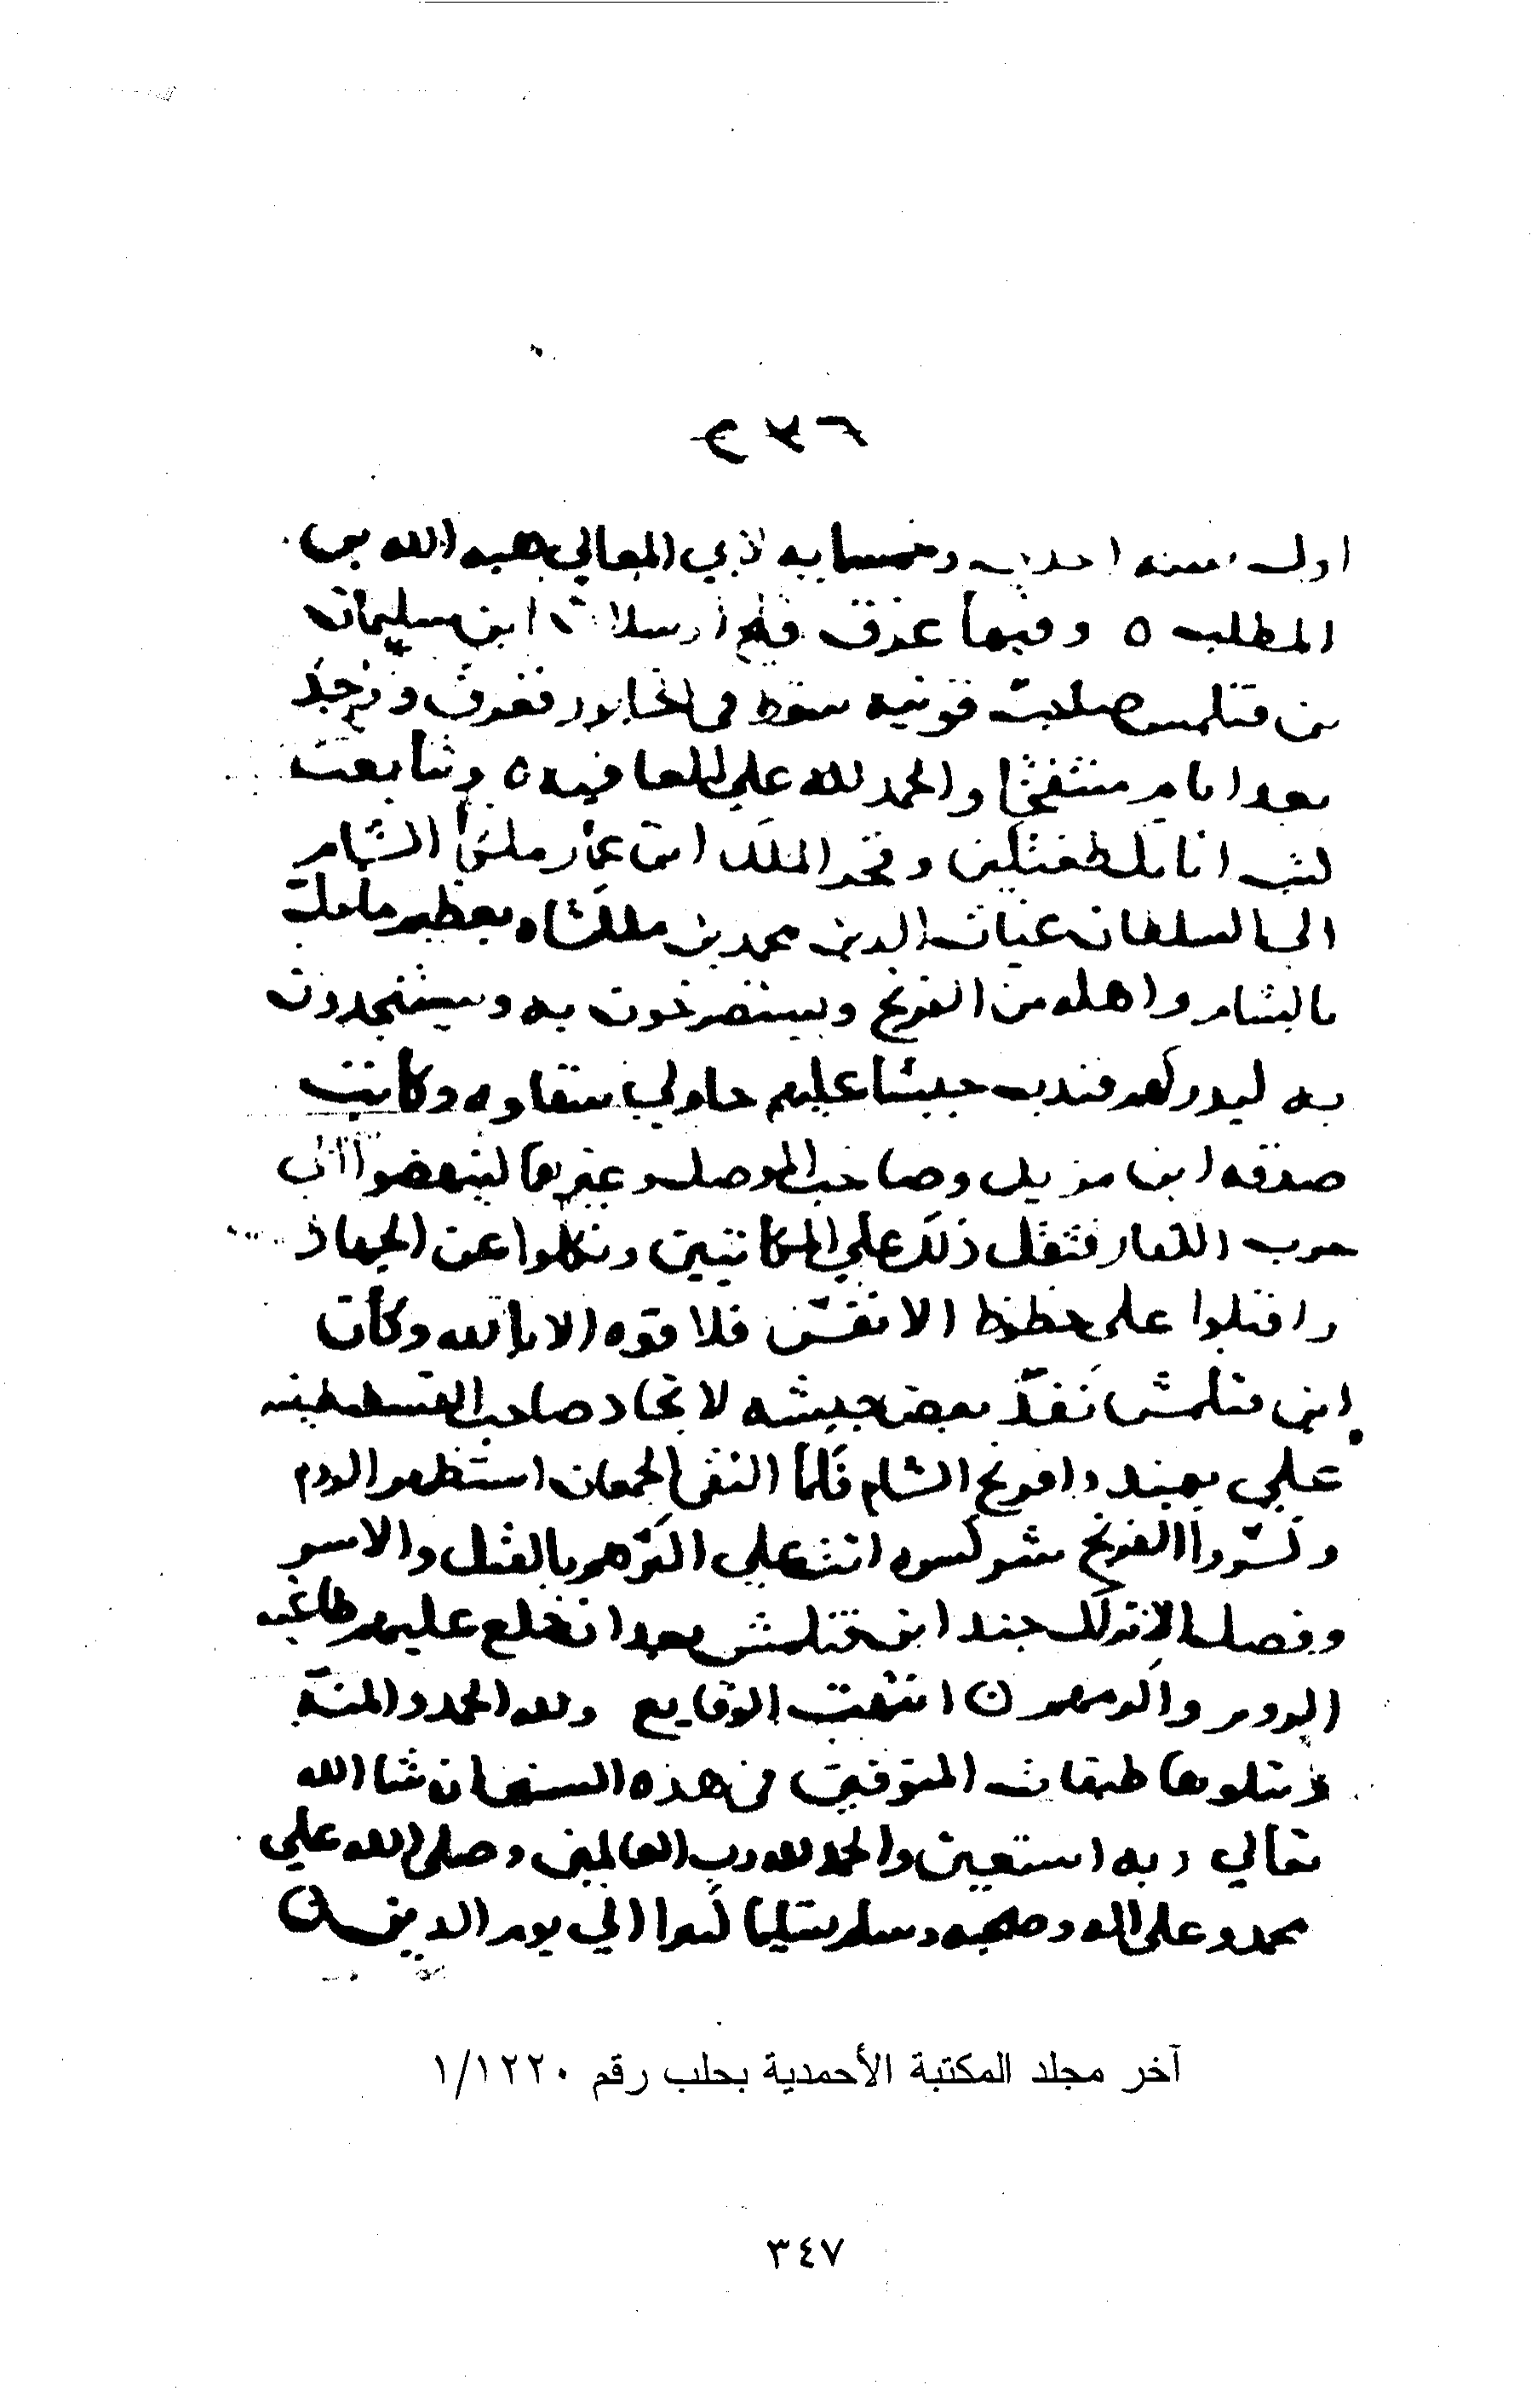 اول سنه احدى وخمسمايه لابي المعالي هبه الله بن
المطلب ٥ وفيها غرق قلج ارسلان ابن سليمان
بن قتلمس صاحب قونيه سقط في الخابور فغرق ووجد
بعد ايام منتفخا والحمد لله على العافيه ٥ وتتابعت
كتب اتابك طغتكين وفخر الملك ابن عمار ملكي الشام
الى السلطان غياث الدين محمد بن ملكشاه بعظيم ما حل
بالشام واهله من الفرنج ويستصرخون به ويستنجدون
به ليدركهم فندب جيشا عليهم جاولي سقاوه وكاتب
صدقه ابن مزيد وصاحب الموصل وغيرها لينهضوا الى
حرب الكفار فثقل ذلك على المكاتبين ونكلوا عن الجهاد
واقبلوا على حظوظ الانفس فلا قوه الا بالله وكان
ابن قتلمش نفذ بعض جيشه لانجاد صاحب القسطنطينيه
على بيمند وافرنج الشام فلما التقى الجمعان استظهر الروم
وكسروا الفرنج شر كسره اتت على اكثرهم بالقتل والاسر
وفصل الاتراك جند ابن قتلمش بعد ان خلع عليهم طاغيه
الروم واكرمهم ٥ انتهت الوقايع ولله الحمد والمنة
ويتلوها طبقات المتوفين في هذه السنين ان شا الله
تعالى وبه استعين والحمد لله رب العالمين وصلى الله على
محمد وعلى اله وصحبه وسلم تسليما كثيرا الى يوم الدين ٥
آخر مجلد المكتبة الأحمدية بحلب رقم ١/١٢٢٠
٣٤٧